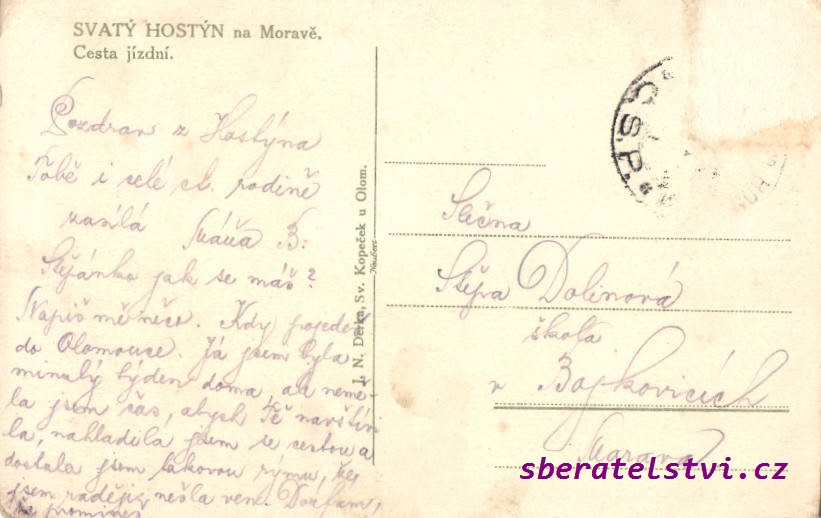 SVATÝ HOSTÝN na Moravě.
Cesta jízdní.
Pozdrav z Hostýna
Tobě i celé ct. rodině
zasílá Máňa B.
Štěpánko jak se máš?
Napiš mě něco. Kdy pojedeš
do Olomouce. Já jsem byla
minulý týden doma, a nemě-
la jsem čas, abych Tě navštívi-
la, nahladila jsem se cestou a
dostala jsem takovou rýmu, že
jsem raději nešla ven. Doufám,
že promineš
J. N. Derka, Sv. Kopeček u Olom.
Neubert
C.S.P.
Slečna
Štěpa Dolinová
škola
v Bojkovicích
Morava
sberatelstvi.cz